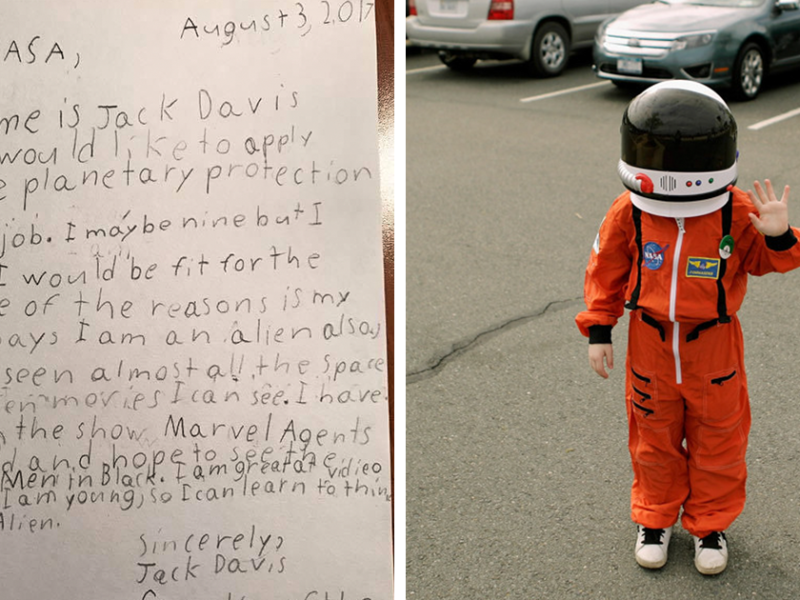 August 3, 2017
ASA,
me is Jack Davis
would like to apply
e planetary protection
job. I maybe nine but I
I would be fit for the
e of the reasons is my
ays I am an alien also,
seen almost all the space
en movies I can see. I have
the show Marvel Agents
d and hope to see the
Men in Black. I am great at vidieo
I am young, so I can learn to thin
Alien.
Sincerely,
Jack Davis
NASA